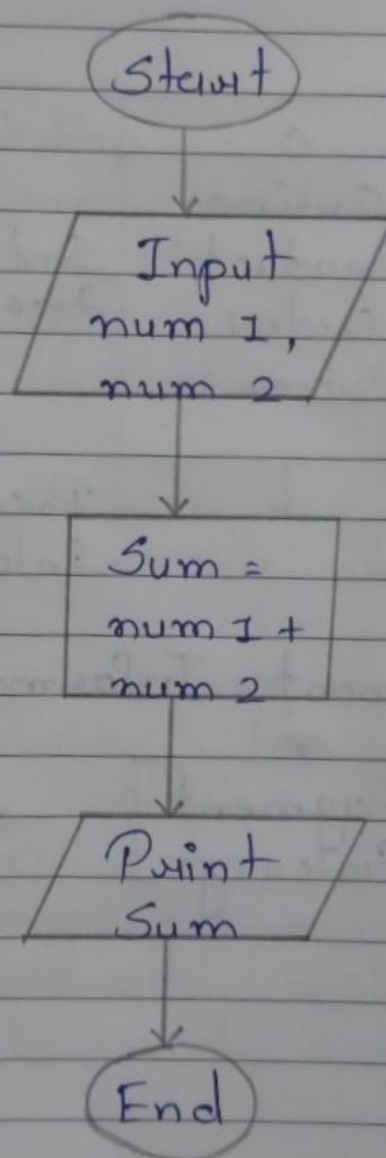 Start
Input
num 1,
num 2
Sum =
num 1 +
num 2
Print
Sum
End